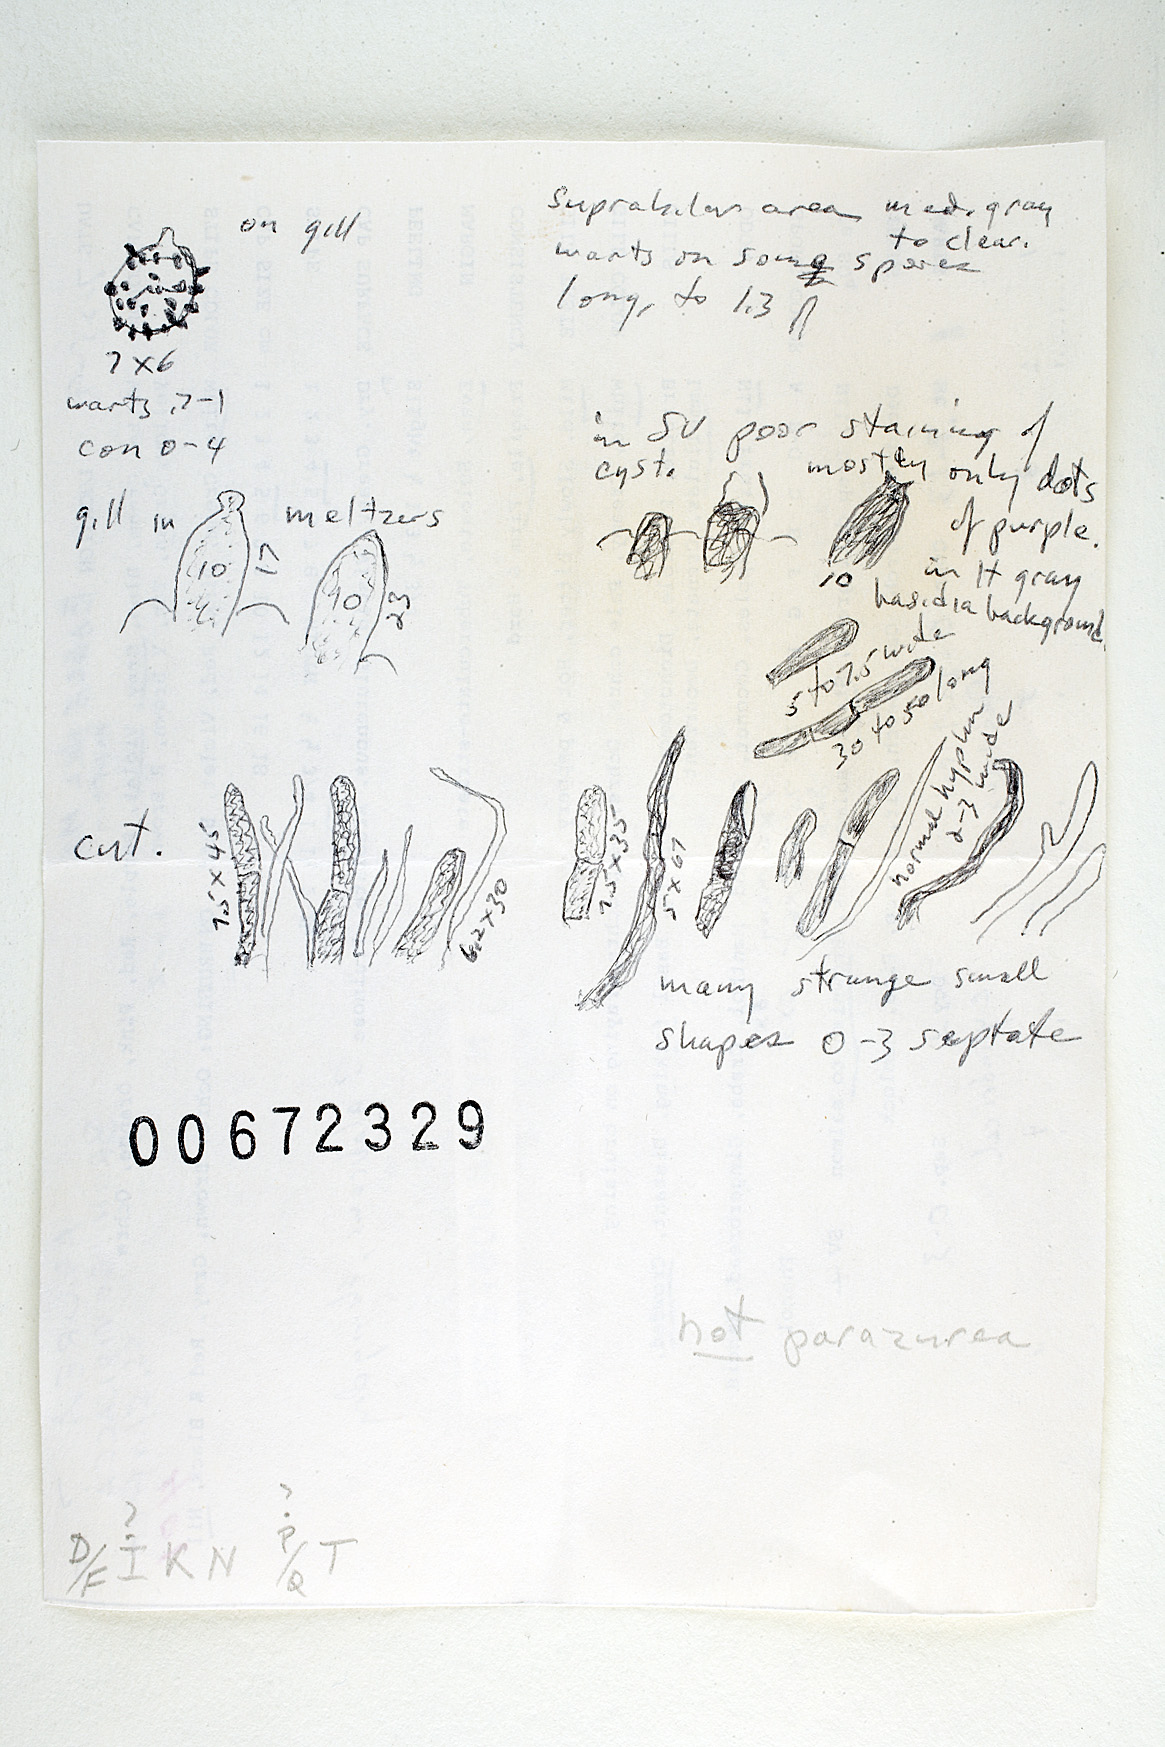 on gill
7 x 6
warts .7-1
con 0-4
Suprahilar area med. gray
to clear.
warts on some spores
long, to 1.3 µ
gill in meltzers
10 17
10 23
in SV poor staining of
cyst. mostly only dots
of purple.
10
in it gray
basidia background
5 to 7.5 wide
30 to 50 long
cut.
7.5 x 45
6.2 x 30
7.5 x 35
5 x 67
normal hyphae
2-3 wide
many strange small
shapes 0-3 septate
00672329
not parazurea
D/F ? I K N ? P/Q T